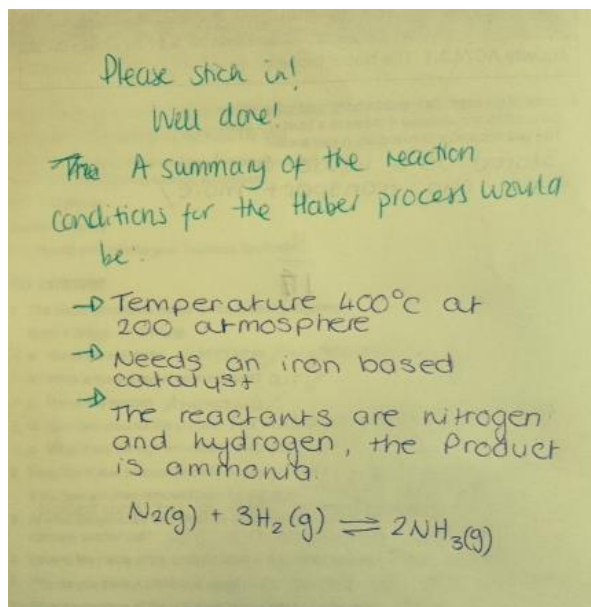 Please stick in!
Well done!
A summary of the reaction
conditions for the Haber process would
be:
→ Temperature 400°c at
200 atmosphere
→ Needs an iron based
catalyst
→
The reactants are nitrogen
and hydrogen, the Product
is ammonia.
N2(g) + 3H₂(g) ⇌ 2NH₃(g)